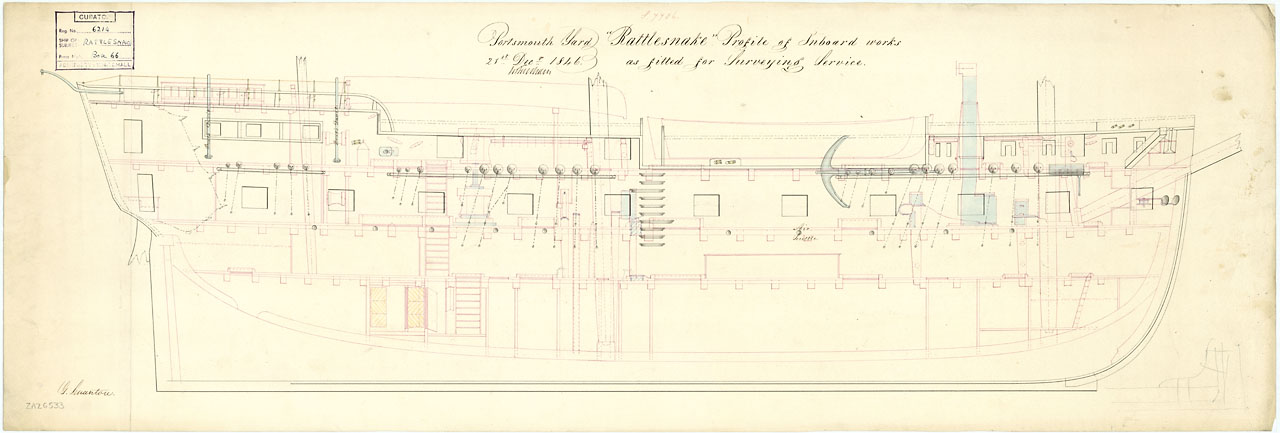 CURATO
Reg. No. 6214
SHIP OR
SUBJECT RATTLESNAKE
Box 66
Portsmouth Yard "Rattlesnake" Profile of Inboard works
21st Decr. 1846 as fitted for Surveying Service.
ZAZ6533